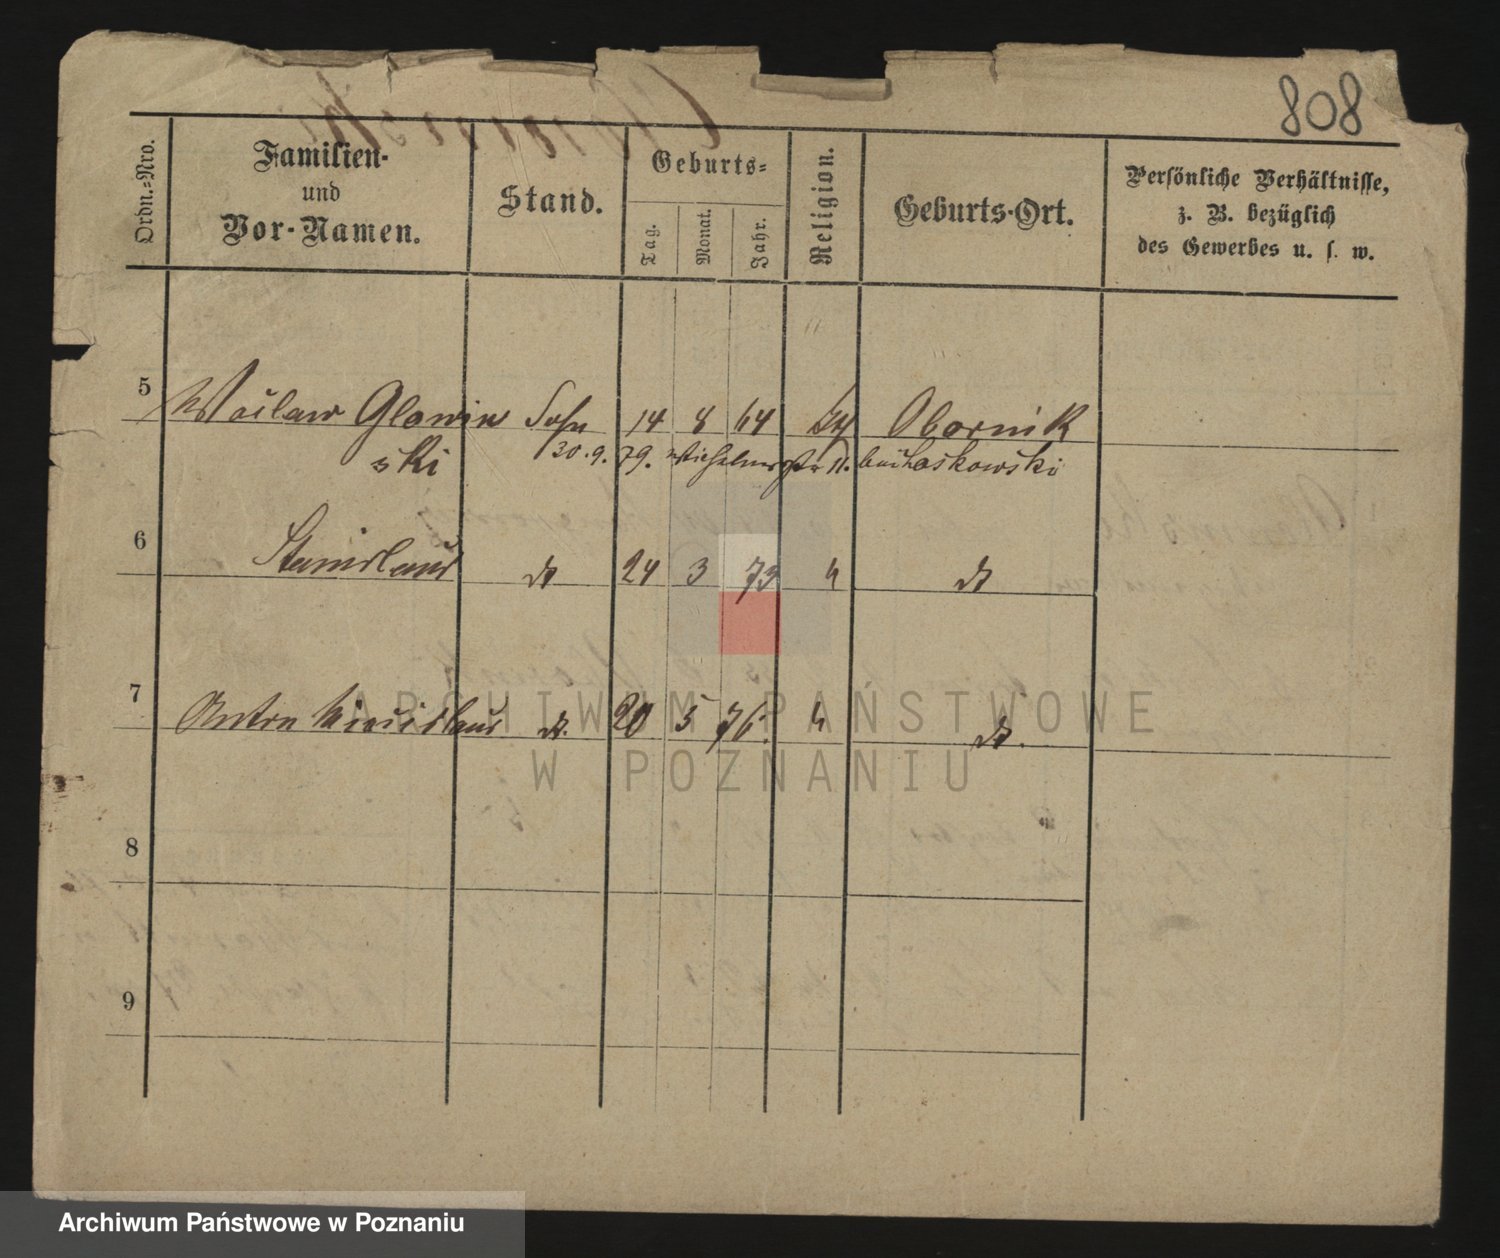 808
Ordn.=Nro.
Familien-
und
Vor-Namen.
Stand.
Geburts=
Tag.
Monat.
Jahr.
Religion.
Geburts-Ort.
Persönliche Verhältnisse,
z. B. bezüglich
des Gewerbes u. s. w.
5 Waclaw Glowin Sohn 14 8 64 Obornik
ski 30.9. 79. Wilhelmstr 11. bei Laskowski
6 Stanislaus dt 24 3 73 dt
7 Anton dt. 20 5 76. dt.
8
9
ARCHIWUM PAŃSTWOWE
W POZNANIU
Archiwum Państwowe w Poznaniu